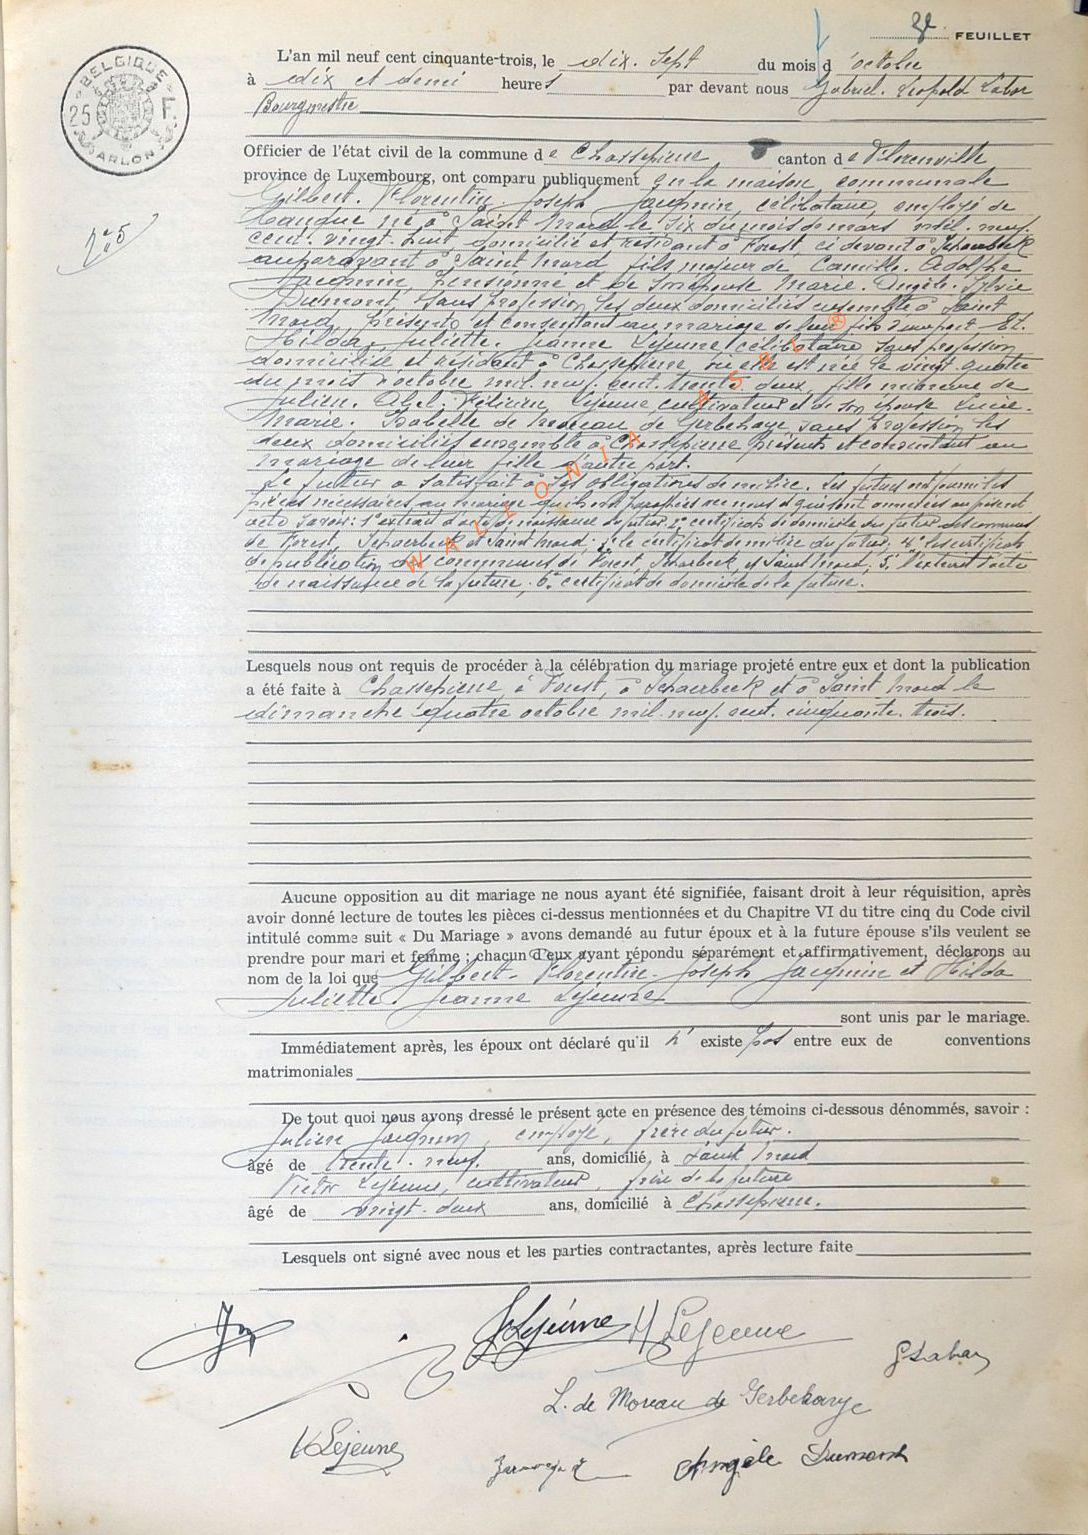 FEUILLET
BELGIQUE
25 F.
ARLON
L'an mil neuf cent cinquante-trois, le dix-sept du mois d'octobre
à dix et demi heures par devant nous Gabriel-Léopold Labar
Bourgmestre
Officier de l'état civil de la commune de Chassepierre, canton de Florenville
province de Luxembourg, ont comparu publiquement en la maison communale
Gilbert-Florentin-Joseph Jacqmin, célibataire, employé de
banque né à Saint Mard le six du mois de mars mil-neuf-
cent-vingt-huit domicilié et résidant à Forest, ci devant à Schaerbeek
auparavant à Saint Mard, fils majeur de Camille-Adolphe
Jacqmin, pensionné et de son épouse Marie-Angèle-Sylvie
Dumont, sans profession, les deux domiciliés ensemble à Saint
Mard, présents et consentant au mariage de leur fils d'une part. Et.
Hilda-Juliette-Jeanne Lejeune célibataire sans profession
domiciliée et résidant à Chassepierre où elle est née le vingt-quatre
du mois d'octobre mil-neuf-cent-trente-deux, fille mineure de
Julien-Abel-Félicien Lejeune, cultivateur et de son épouse Lucie-
Marie-Isabelle de Moreau de Gerbehaye sans profession les
deux domiciliés ensemble à Chassepierre présents et consentant au
mariage de leur fille d'autre part.
Le futur a satisfait à ses obligations de milice. Les futurs ont fourni les
pièces nécessaires au mariage qui sont annexées au présent
acte savoir: 1° l'extrait d'acte de naissance du futur 2° certificats de domicile du futur des communes
de Forest, Schaerbeek et Saint Mard; 3° le certificat de milice du futur; 4° les certificats
de publication des communes de Forest, Schaerbeek, et Saint Mard; 5° l'extrait d'acte
de naissance de la future; 6° certificat de domicile de la future.
WALLONIA ASBL ®
Lesquels nous ont requis de procéder à la célébration du mariage projeté entre eux et dont la publication
a été faite à Chassepierre, à Forest, à Schaerbeek et à Saint Mard le
dimanche quatre octobre mil-neuf-cent-cinquante-trois.
Aucune opposition au dit mariage ne nous ayant été signifiée, faisant droit à leur réquisition, après
avoir donné lecture de toutes les pièces ci-dessus mentionnées et du Chapitre VI du titre cinq du Code civil
intitulé comme suit « Du Mariage » avons demandé au futur époux et à la future épouse s'ils veulent se
prendre pour mari et femme ; chacun d'eux ayant répondu séparément et affirmativement, déclarons au
nom de la loi que Gilbert-Florentin-Joseph Jacqmin et Hilda
Juliette-Jeanne Lejeune
sont unis par le mariage.
Immédiatement après, les époux ont déclaré qu'il n'existe pas entre eux de conventions
matrimoniales
De tout quoi nous avons dressé le présent acte en présence des témoins ci-dessous dénommés, savoir :
Julien Jacqmin, employé, frère du futur.
âgé de trente-neuf ans, domicilié, à Saint Mard
Victor Lejeune, cultivateur, frère de la future
âgé de vingt-deux ans, domicilié à Chassepierre.
Lesquels ont signé avec nous et les parties contractantes, après lecture faite
Lejeune H Lejeune
G Labar
L. de Moreau de Gerbehaye
V Lejeune
Angèle Dumont